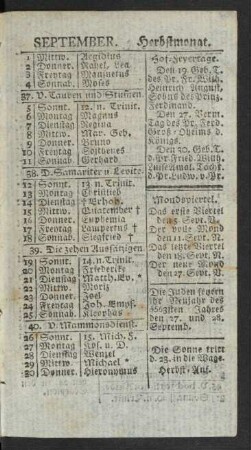 SEPTEMBER. Herbstmonat.
1 Mittw. Aegidius
2 Donner. Rahel, Lea
3 Freytag Manſuetus
4 Sonnab. Moſes
37. V. Tauben und Stummen.
5 Sonnt. 12. n. Trinit.
6 Montag Magnus
7 Dienſtag Regina
8 Mittw. Mar. Geb.
9 Donner. Bruno
10 Freytag Soſthenes
11 Sonnab. Gerhard
38. V. Samariter u. Levite.
12 Sonnt. 13. n. Trinit.
13 Montag Chriſtlieb
14 Dienſtag † Erhöh.
15 Mittw. Quatember †
16 Donner. Euphemia
17 Freytag Lampertus †
18 Sonnab. Siegfried
39. Die zehen Auſſätzigen
19 Sonnt. 14. n. Trinit.
20 Montag Friederike
21 Dienſtag Matth. Ev. *
22 Mittw. Moritz
23 Donner. Joel
24 Freytag Joh. Empf.
25 Sonnab. Kleophas
40. V. Mammonsdienſt.
26 Sonnt. 15. Mich. F.
27 Montag Coſ. u. D.
28 Dienſtag Wenzel
29 Mittw. Michael *
30 Donner. Hieronymus
Hof-Feyertage.
Den 19. Geb. T.
des Pr. Fr. Wilh.
Heinrich Auguſt,
Sohns des Prinz.
Ferdinand.
Den 27. Verm.
Tag des Pr. Ferd.
Groß-Oheims d.
Königs.
Den 30. Geb. T.
d. Pr. Fried. Wilh.
Luiſe Amal. Gem.
d. Pr. Ludw. v. Pr.
Mondviertel.
Das erſte Viertel
den 3. Sept. N.
Der volle Mond
den 11. Sept. N.
Das letzte Viertel
den 18. Sept. N.
Der neue Mond
den 27. Sept. V.
Die Juden feyern
ihr Neujahr des
Jahrs
den 27. und 28.
Septemb.
Die Sonne tritt
d. 23. in die Wage.
Herbſt-Anf.